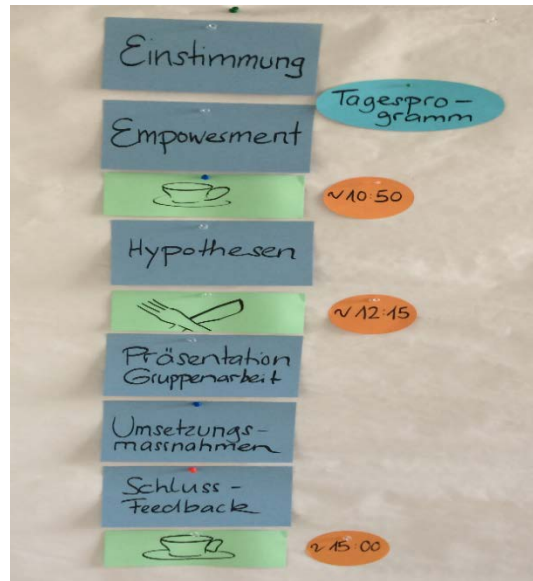 Einstimmung
Tagespro-
gramm
Empowerment
~10:50
Hypothesen
~12:15
Präsentation
Gruppenarbeit
Umsetzungs-
massnahmen
Schluss-
Feedback
~15:00